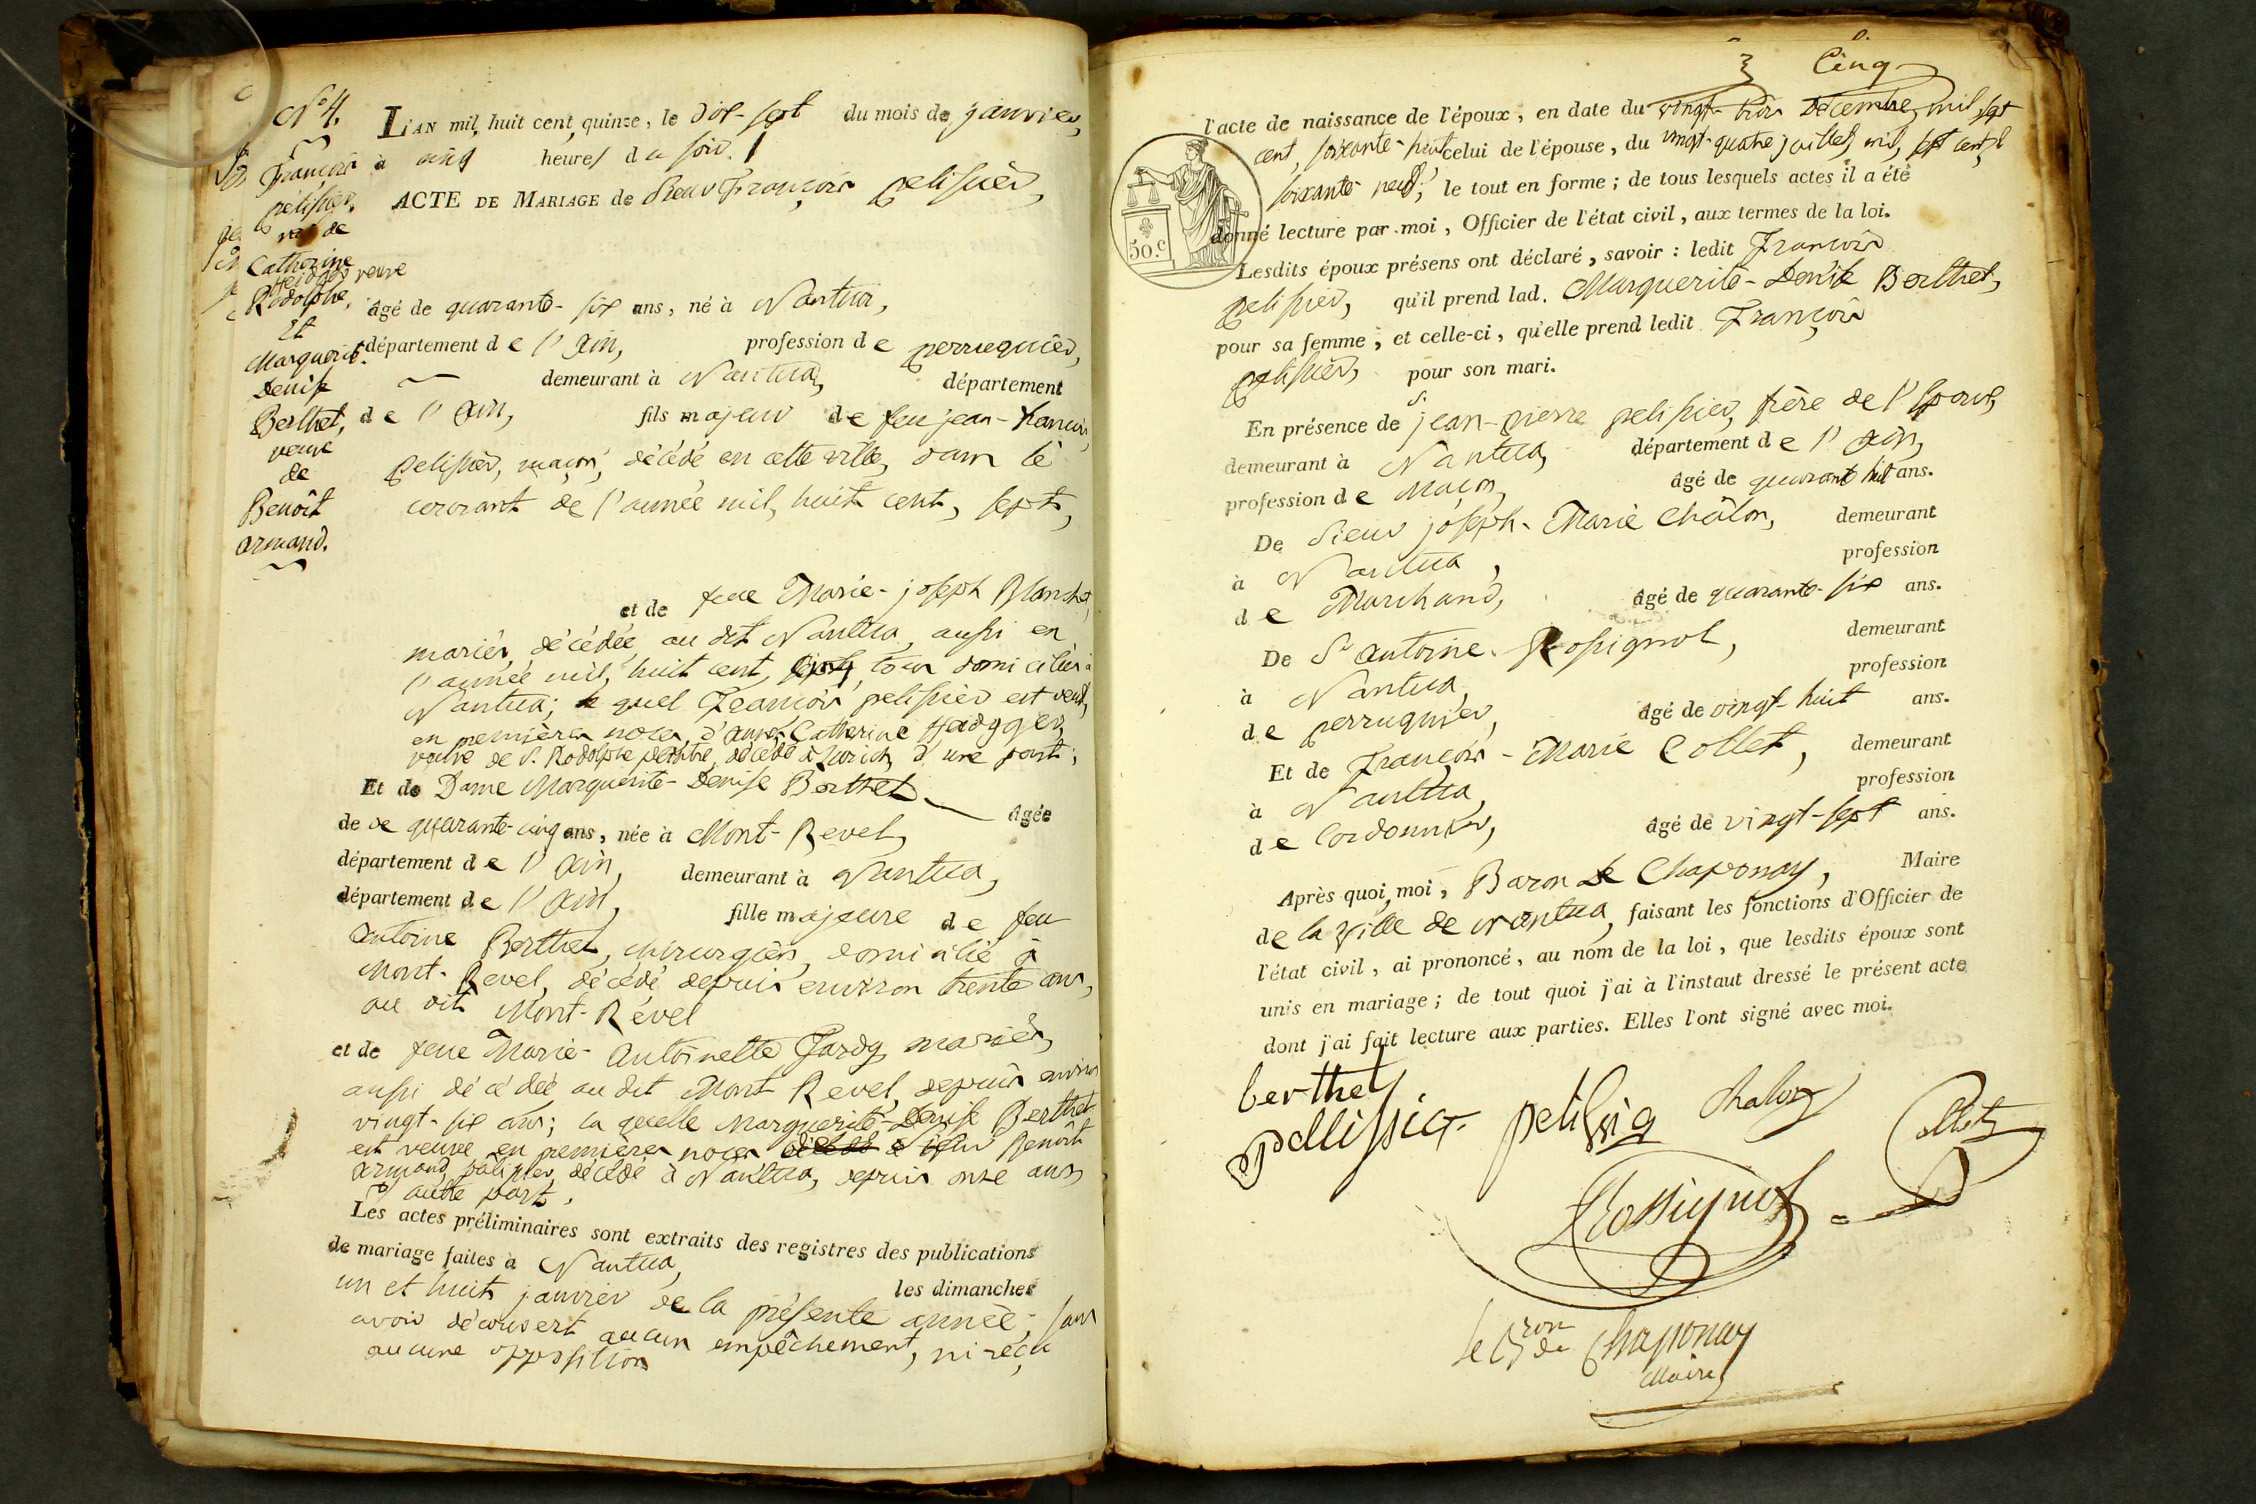 N° 4.
François
pelissier,
veuf de
Catherine
Heidgger veuve
Rodolphe,
Et
Marguerite
Denise
Berthet,
veuve
de
Benoît
armand.
L'AN mil huit cent quinze, le Dix-sept du mois de janvier,
à cinq heures du soir.
ACTE DE MARIAGE de Sieur François pelissier,
âgé de quarante-six ans, né à Nantua,
département de l'ain, profession de perruquier,
demeurant à Nantua, département
de l'ain, fils majeur de feu jean-francois
pelissier, maçon, décédé en cette ville, dans le
courant de l'année mil, huit cent, sept,
et de feue Marie-joseph Blanchet,
mariés, décédée au dit Nantua, aussi en
l'année mil, huit cent, tous domiciliés à
Nantua; le quel François pelissier est veuf,
en premières noces, d'anne Catherine Heidgger,
veuve de S. Rodolphe décédé à Zurich, d'une part;
Et de Dame Marguerite-Denise Berthet âgée
de de quarante-cinq ans, née à Mont-Revel,
département de l'ain, demeurant à Nantua,
département de l'ain, fille majeure de feu
antoine Berthet, chirurgien, domicilié à
Mont-Revel, décédé depuis environ trente ans,
au dit Mont-Revel
et de feue Marie-Antoinette Jardy mariés,
aussi décédée au dit Mont-Revel, depuis environ
vingt-six ans; la quelle Marguerite-Denise Berthet
est veuve en premières noces de Sieur Benoît
armand, décédé à Nantua, depuis onze ans
d'autre part.
Les actes préliminaires sont extraits des registres des publications
de mariage faites à Nantua,
les dimanches
un et huit janvier de la présente année; sans
avoir découvert aucun empêchement, ni reçu
aucune opposition
Cinq
l'acte de naissance de l'époux, en date du vingt-trois Décembre, mil sept
cent, soixante-huit celui de l'épouse, du vingt-quatre juillet, mil, sept cent,
soixante neuf; le tout en forme; de tous lesquels actes il a été
donné lecture par moi, Officier de l'état civil, aux termes de la loi.
50.c
Lesdits époux présens ont déclaré, savoir: ledit François
pelissier, qu'il prend lad. Marguerite-Denise Berthet,
pour sa femme; et celle-ci, qu'elle prend ledit François
pelissier, pour son mari.
En présence de S. jean-pierre pelissier, frère de l'Epoux,
demeurant à Nantua, département de l'ain,
profession de Maçon, âgé de quarante huit ans.
De Sieur joseph-Marie Châlon, demeurant
à Nantua, profession
de Marchand, âgé de quarante-six ans.
De Sr antoine Rossignol, demeurant
à Nantua, profession
de perruquier, âgé de vingt-huit ans.
Et de François-Marie Collet, demeurant
à Nantua, profession
de Cordonnier, âgé de vingt-sept ans.
Après quoi, moi, Baron De Chaponay, Maire
de la ville de nantua, faisant les fonctions d'Officier de
l'état civil, ai prononcé, au nom de la loi, que lesdits époux sont
unis en mariage; de tout quoi j'ai à l'instaut dressé le présent acte
dont j'ai fait lecture aux parties. Elles l'ont signé avec moi.
berthet
pellissier pelissier Chalon Collet
Rossignol
le Bron de Chaponay
Maire